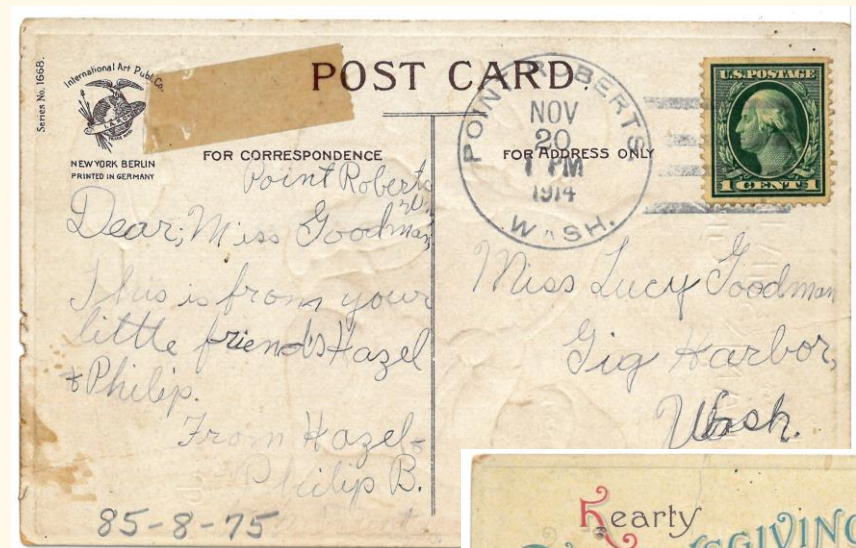 Series No. 1668.
International Art Publ. Co.
NEW YORK BERLIN
PRINTED IN GERMANY
POST CARD.
FOR CORRESPONDENCE
FOR ADDRESS ONLY
POINT ROBERTS
NOV
20
1 PM
1914
WASH.
U.S. POSTAGE
1 CENT 1
Point Roberts
Wn
Dear, Miss Goodman,
This is from your
little friend's Hazel
& Philip.
From Hazel &
Philip B.
85-8-75
Miss Lucy Goodman
Gig Harbor,
Wash.
Hearty